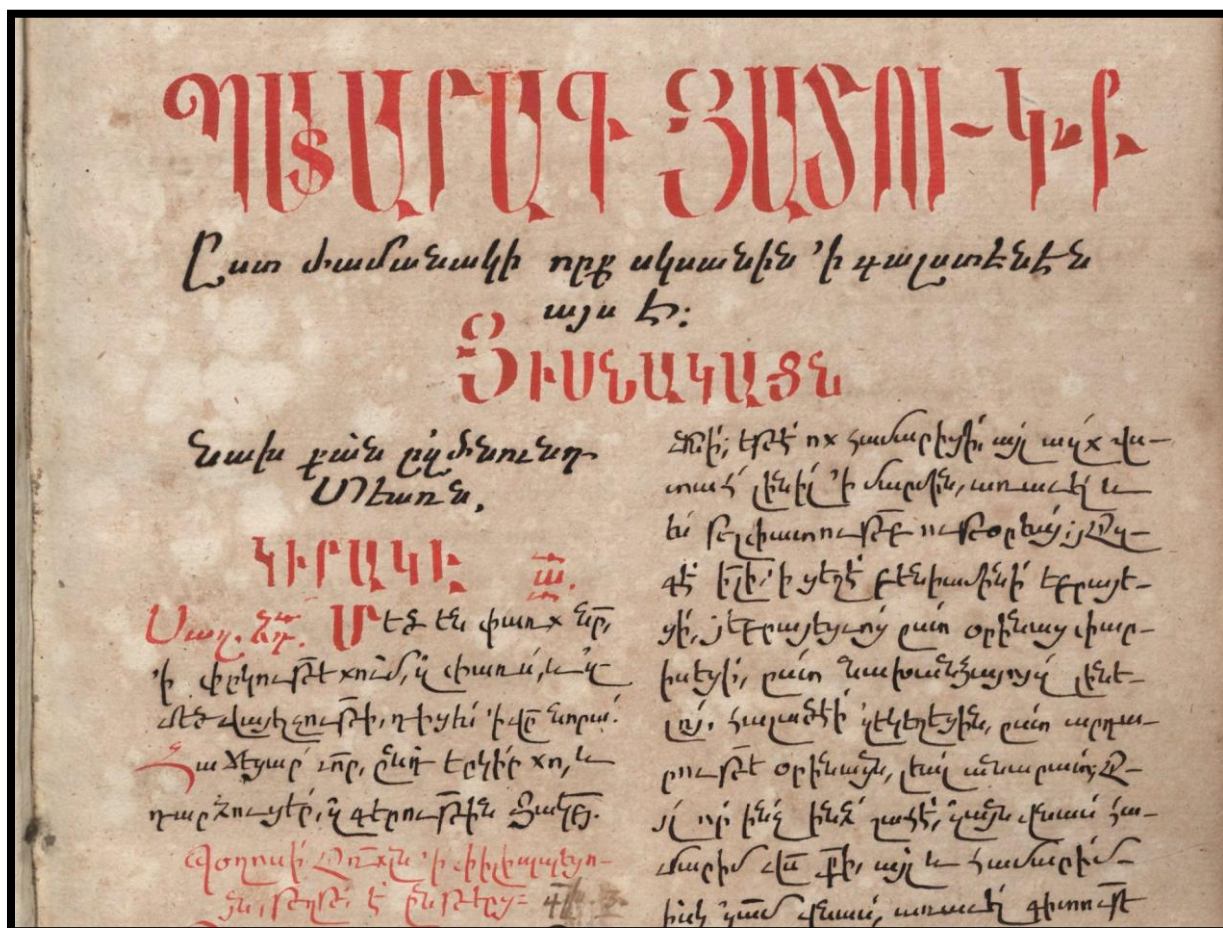 ՊԱՏԱՐԱԳ
Ըստ ժամանակի որք սկսանին 'ի գալստենէն
այս է:
ՅԻՍՆԱԿԱՑՆ
Նախ քան զծնունդ
Տեառն.
ԿԻՐԱԿԷ Ա.
Սաղ. Մեծ են փառք նր,
'ի փրկութե քում, զփառս, և զ-
մեծ վայելչութի, դիցես 'ի վր նորա:
Հաճեցար տր, ընդ երկիր քո, և
դարձուցեր, զգերութին Յակբյ.
Պօղոսի 'ի փիլիպպեցո-
ցն, թղթի է ընթերց=
եթէ ոչ համարիցի, այլ
լինիլ 'ի մարմին, առաւել ևս
ես թլփատութբ ութօրեայ; յազ-
գէ իլի, 'ի ցեղէ բենիամինի եբրայե-
ցի, յեբրայեցւոց ըստ օրինաց փար-
իսեցի, ըստ նախանձայուզ լինե-
լոյ. հալածէի զեկեղեցին, ըստ արդա-
րութե օրինացն, լեալ անարատ; Ա-
յլ որ ինչ ինձ զայն վնաս հա-
մարիմ վս քի, այլ և համարիմ
իսկ զամ վնաս, առաւել գիտութե